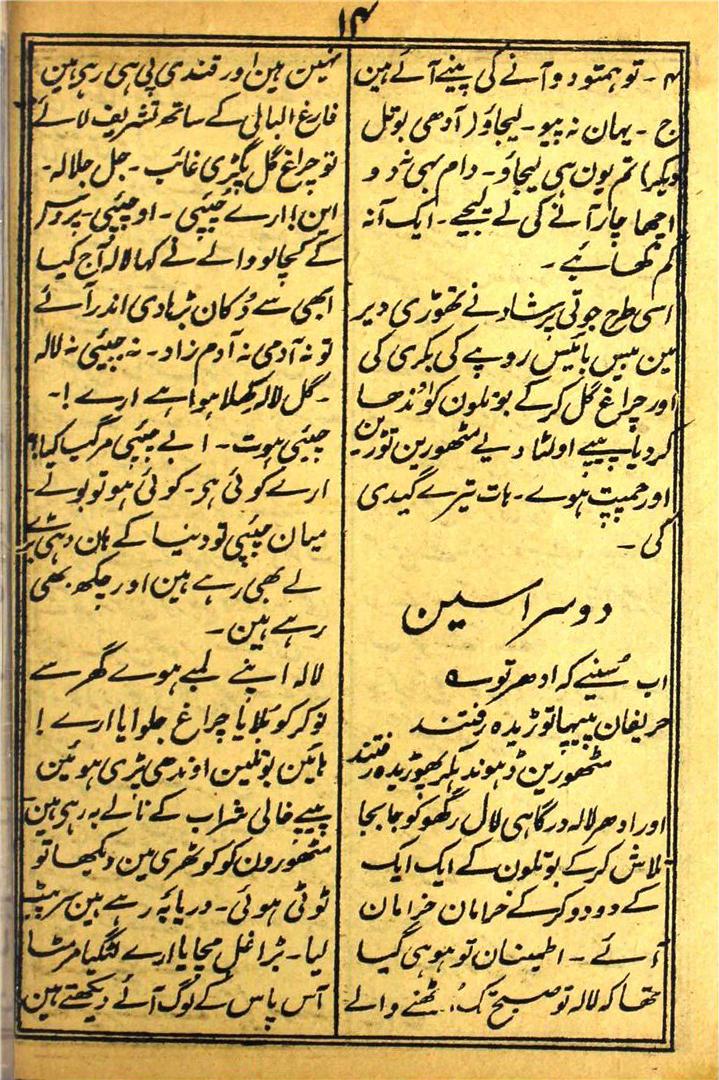 ۱۴
م ۔ تو ہمتو دو آنے کی پینے آئے ہین
ج ۔ یہان نہ پیو ۔ لیجاؤ (آدھی بوتل
دیکر) تم یون ہی لیجاؤ ۔ دام بہی نہ دو
اچھا چار آنے کی لے لیجیے ۔ ایک آنہ
کم
اسی طرح جوتی پرشاد نے تھوڑی دیر
مین بیس بائیس روپے کی بکری کی
اور چراغ گل کرکے بوتلون کو اوندھا
کردیا پیپے اولٹا دیے مٹھورین توڑین
اور چمپت ہوے ۔ ہات تیرے گیدی
کی ۔
دوسرا سین
اب سُنیے کہ ادھر تو ؎
حریفان پیپہا توڑیدہ رفتند
مٹھورین ڈھونڈہکر پھوڑیدہ رفتند
اور ادھر لالہ درگاہی لال رگھو کو جابجا
تلاش کرکے بوتلون کے ایک ایک
کے دو دو کرکے خرامان خرامان
آئے ۔ اطمینان تو ہو ہی گیا
تھا کہ لالہ تو صبح تک اُٹھنے والے
نہین ہین اور قندی پی ہی رہی ہین
فارغ البالی کے ساتھ تشریف لائے
تو چراغ گل پگڑی غائب ۔ جل جلالہ ۔
این! ارے چپئی ۔ او چپئی ۔ پروس
کے کچالو والے نے کہا لالہ آج کیا
ابھی سے دُکان بڑہادی اندر آئے
تو نہ آدمی نہ آدم زاد ۔ نہ چپئی نہ لالہ
۔ گل لالہ کھلا ہوا ہے ارے! ۔
چپئی ہوت ۔ ابے چپئی مرگیا کیا؟
ارے کوئی ہی ۔ کوئی ہو تو بولے ۔
میان چپئی تو دنیا کے ہان دہی بڑے
لے بھی رہے ہین اور چکھ بھی
رہے ہین ۔
لالہ اپنے لمبے ہوے گھر سے
نوکر کو بُلایا چراغ جلوایا ارے!
ہائین بوتلین اوندھی پڑی ہوئین
پیپے خالی شراب کے نالے بہ رہی ہین
مٹھورون کو کوٹھری مین دیکھا تو
ٹوٹی ہوئی ۔ دریا بہ رہے ہین سر پیٹ
لیا ۔ بڑا غل مچایا ارے لٹگیا مرمٹا
آس پاس کے لوگ آئے دیکھتے ہین